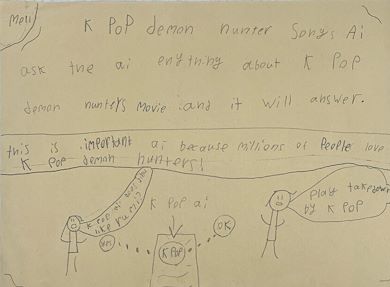 Moll
K POP demon hunter Songs Ai
ask the ai enything about K POP
demon hunters movie and it will answer.
this is important ai because millions of People love
K POP demon hunters!
K POP ai
K POP ai
like
yes
K POP
OK
Play takedown
by K POP